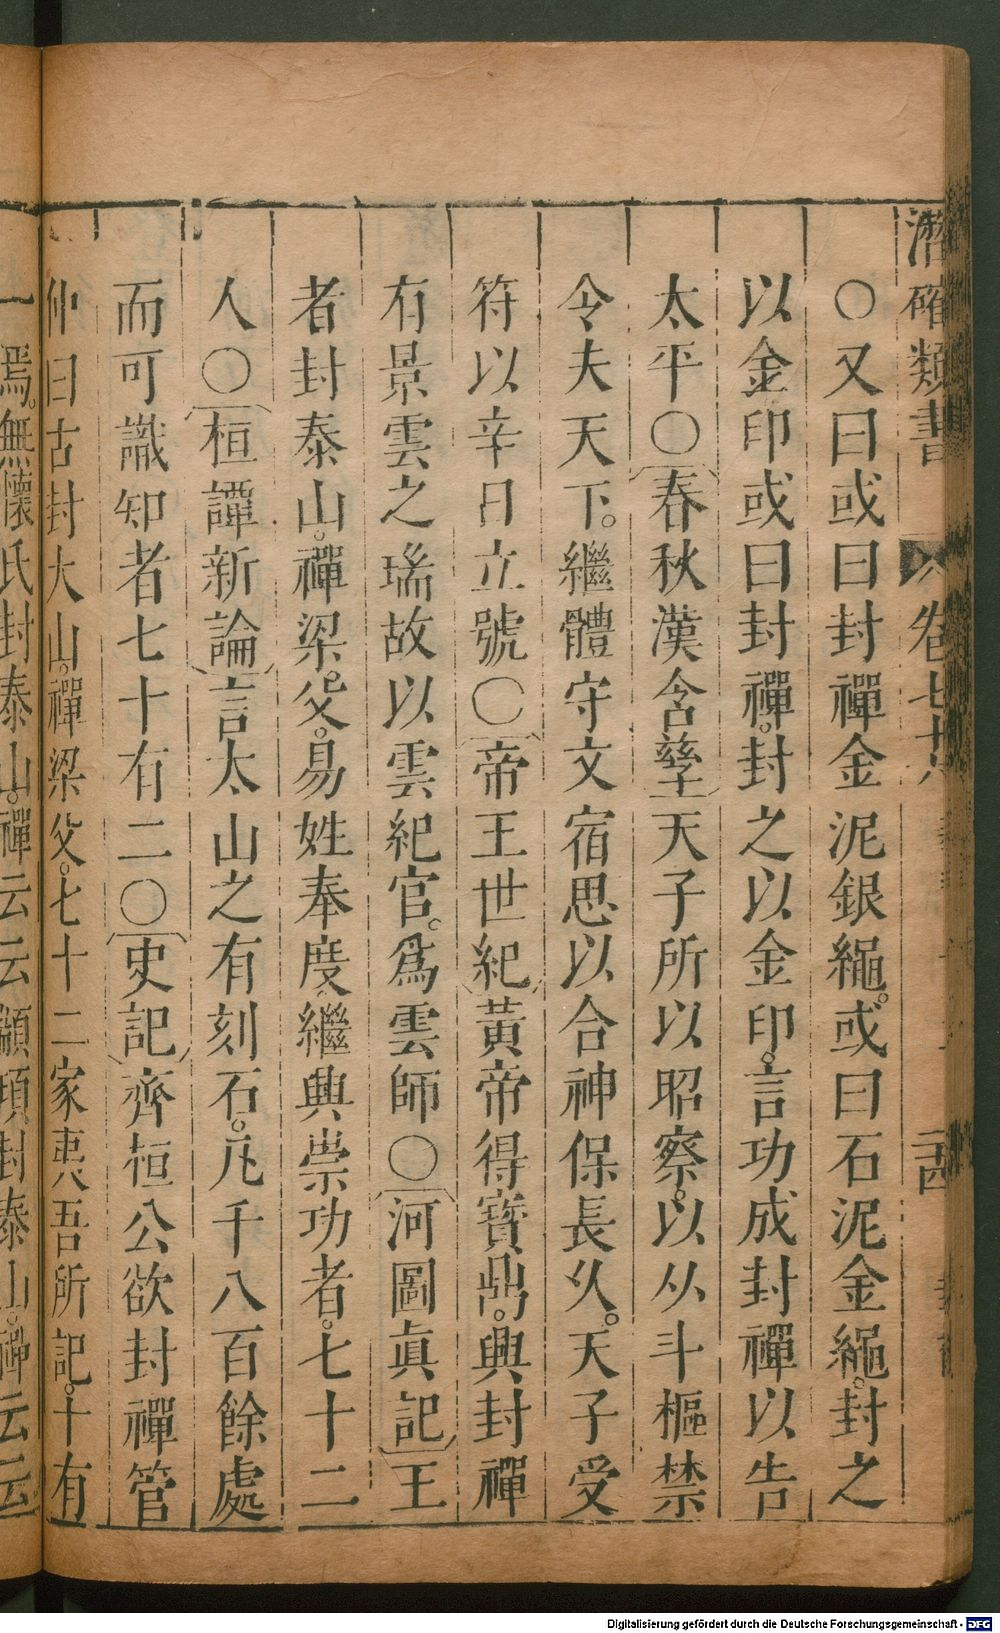 潛確類書 卷七十八 二十四
○又曰或曰封禪金泥銀繩。或曰石泥金繩。封之
以金印或曰封禪。封之以金印。言功成封禪以告
太平○春秋漢含孳天子所以昭察。以从斗樞禁
令夫天下。繼體守文宿思以合神保長久。天子受
符以辛日立號○帝王世紀黃帝得寶鼎。興封禪
有景雲之瑞故以雲紀官。爲雲師○河圖眞記王
者封泰山。禪梁。父。易姓奉度繼興崇功者。七十二
人○桓譚新論言太山之有刻石。凡千八百餘處
而可識知者七十有二○史記齊桓公欲封禪管
仲曰古封大山。禪梁父。七十二家夷吾所記。十有
一焉。無懷氏封泰山。禪云云顓頊封泰山。禪云云
Digitalisierung gefördert durch die Deutsche Forschungsgemeinschaft - DFG